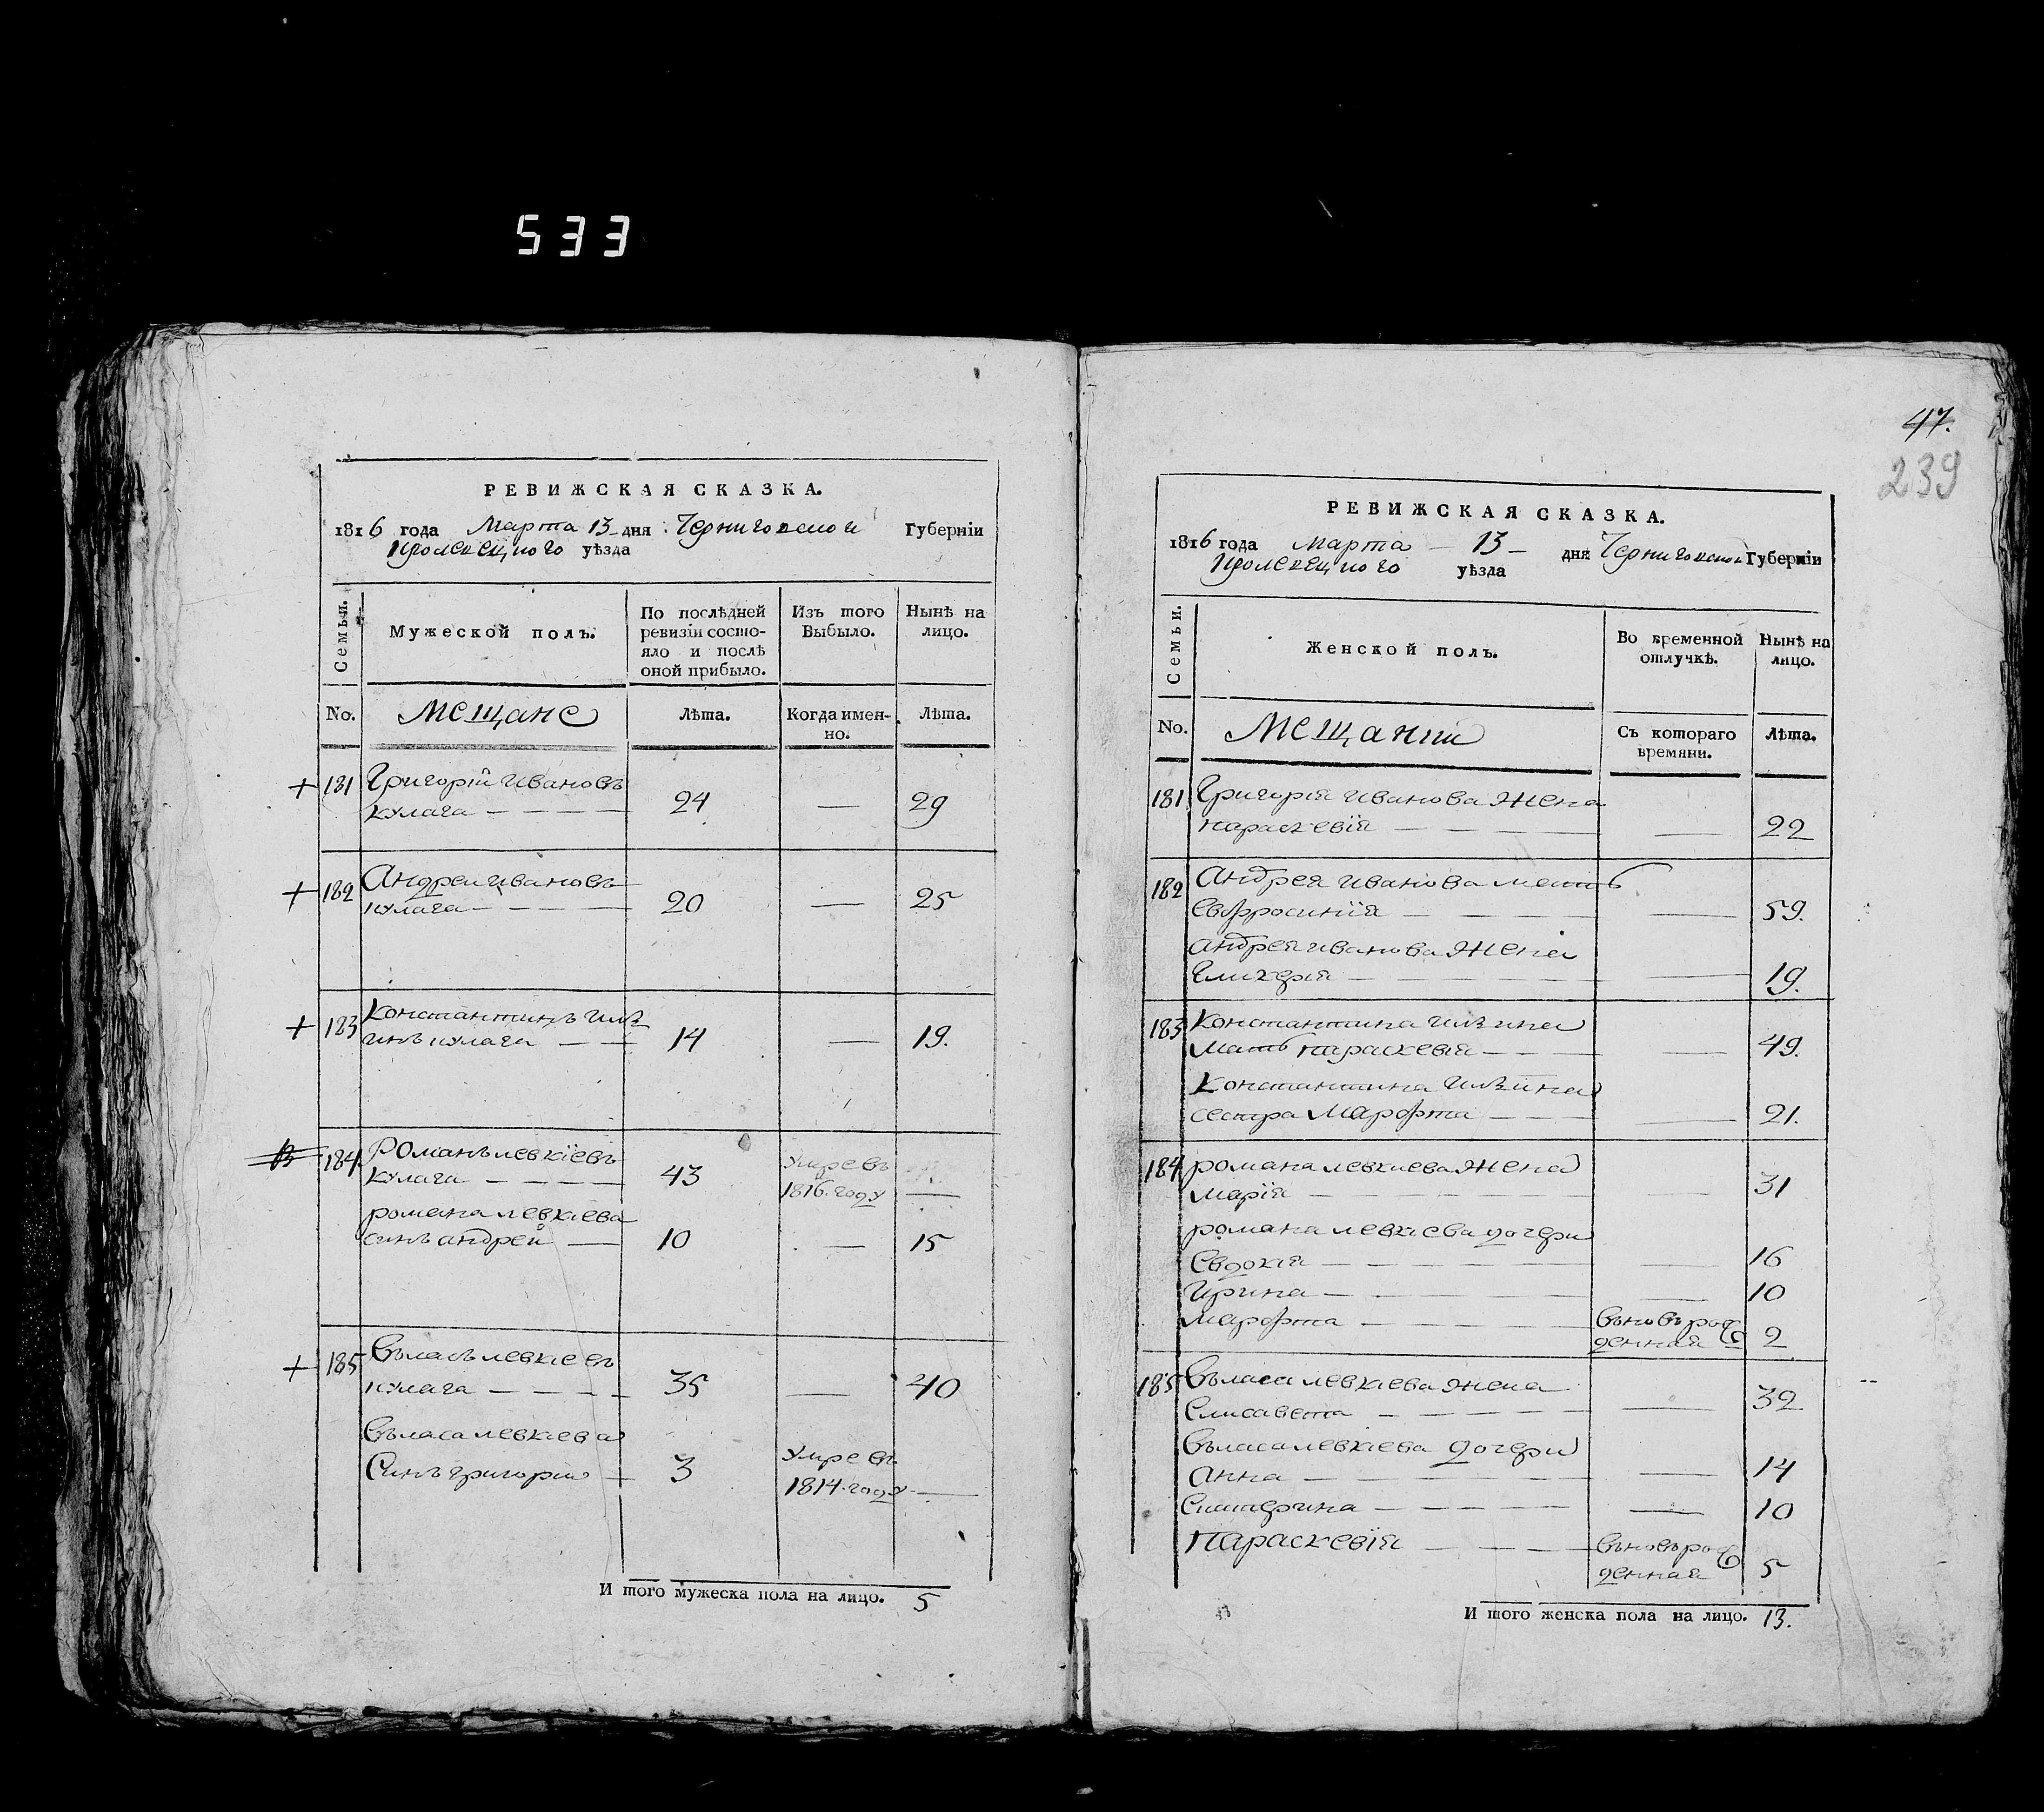 533
РЕВИЖСКАЯ СКАЗКА.
1816 года Марта 13 дня Черниговской Губерніи
Кролевецкого уѣзда
Семьи.
Мужеской полъ.
По послѣдней ревизіи состояло и послѣ оной прибыло.
Изъ того Выбыло.
Нынѣ на лицо.
No.
Мещане
Лѣта.
Когда именно.
Лѣта.
181 Григорій Ивановъ
Кулага 24 — 29
182 Андреи Ивановъ
Кулага 20 — 25
183 Константинъ Илѣ
инъ Кулага 14 — 19.
184 Романъ Левкіевъ
Кулага 43 Умре въ
1816. году —
романа Левкіева
синъ андрей 10 — 15
185 Въласъ Левкіевъ
Кулага 35 — 40
Въласа Левкіева
Синъ григории 3 Умре въ
1814. году —
И того мужеска пола на лицо. 5
47.
239
РЕВИЖСКАЯ СКАЗКА.
1816 года Марта 13 дня Черниговской Губерніи
Кролевецкого уѣзда
Семьи.
Женской полъ.
Во временной отлучкѣ.
Нынѣ на лицо.
No.
Мещанки
Съ котораго времяни.
Лѣта.
181 Григорія Иванова Жена
параскевія — 22
182 Андрея Иванова мать
Евфросинія — 59.
андрея Иванова Жена
Гликерія — 19.
183 Константина Илѣина
Мать параскевія — 49.
Константина Илѣина
сестра Марфта — 21.
184 романа Левкиева Жена
Марія — 31
романа Левкіева дочери
Евдокія — 16
Ирина — 10
Марфта въновърож
денная 2
185 Въласа Левкіева Жена
Елисавета — 32
Въласа Левкіева дочери
Анна — 14
Екатерина — 10
Параскевія въновърож
денная 5
И того женска пола на лицо. 13.